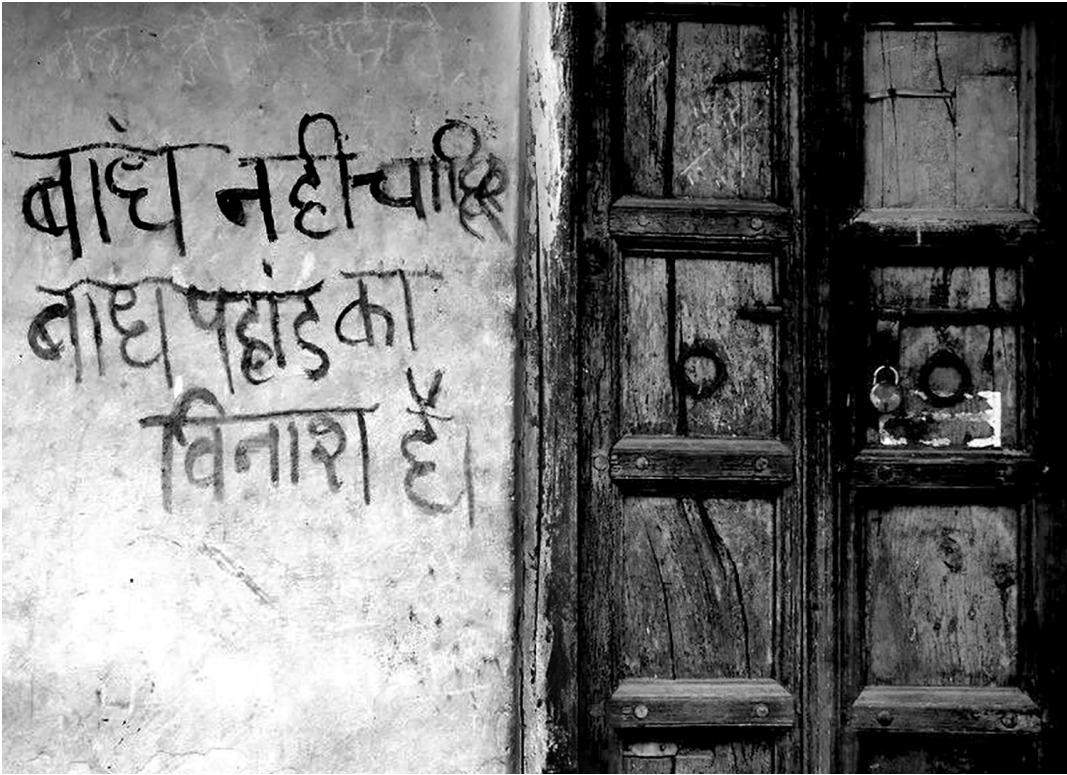 बांध नही चाहिए
बाध पहांड का
विनाश है।